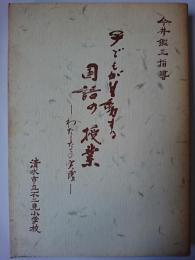 今井鑑三指導
子どもが躍動する
国語の授業
―わたしたちの実践―
清水市立不二見小学校